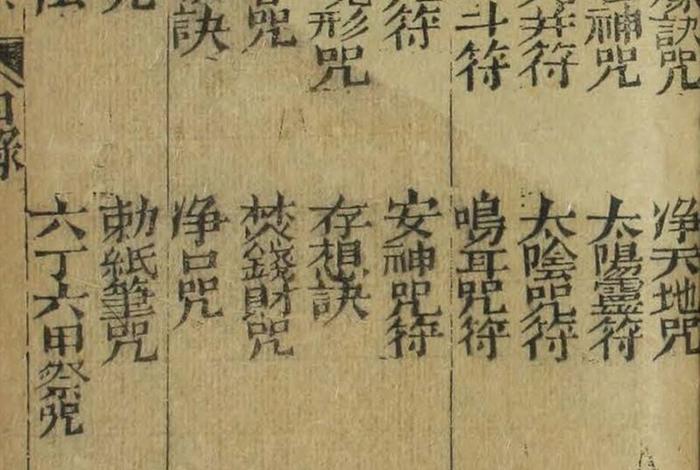 訣咒
神咒
井符
斗符
符
形咒
咒
訣
净天地咒
太陽靈符
太陰咒符
鳴耳咒符
安神咒符
存想訣
焚錢財咒
净口咒
勅紙筆咒
六丁六甲祭咒
目錄